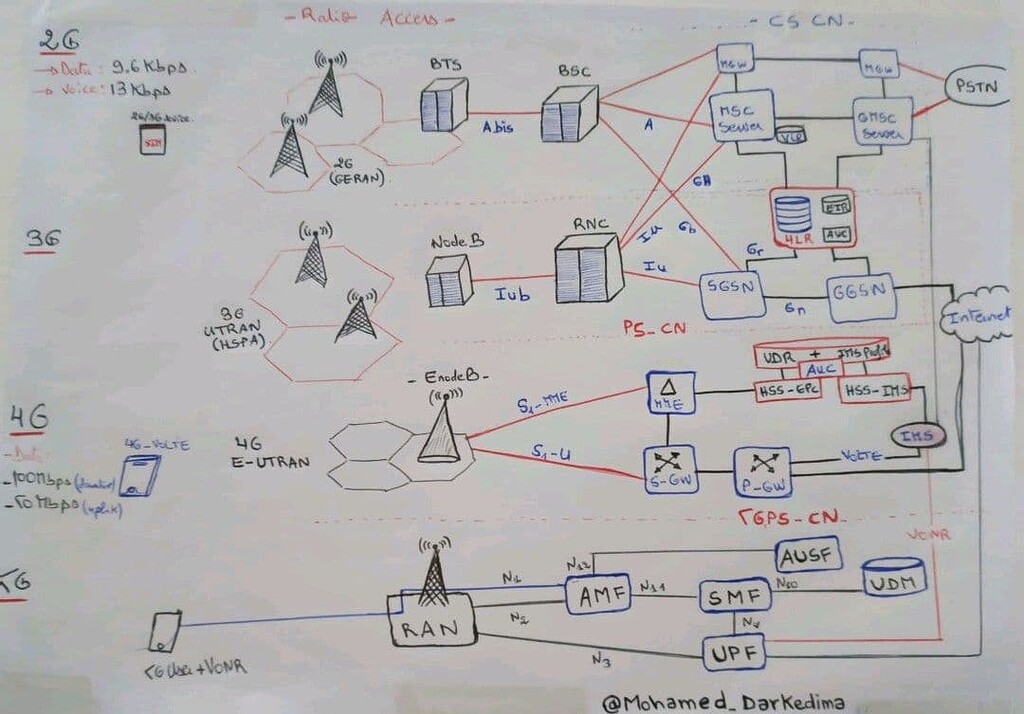 - Radio Access -
- CS CN -
2G
→ Data: 9.6 Kbps
→ Voice: 13 Kbps
SIM
2G
(GERAN)
BTS
Abis
BSC
A
MGW
MGW
MSC
Server
VLR
GMSC
Server
PSTN
HLR
EIR
AUC
3G
3G
UTRAN
(HSPA)
Node B
Iub
RNC
Iu
Gb
Iu
Gr
SGSN
Gn
GGSN
Internet
PS_CN
4G
100Mbps
50Mbps
4G-VOLTE
4G
E-UTRAN
- EnodeB -
S1-MME
S1-U
MME
S-GW
P-GW
UDR + IMS
AUC
HSS-EPC
HSS-IMS
IMS
VOLTE
5GPS-CN
VONR
5G
5G User + VONR
RAN
N1
N2
N3
N12
AMF
N11
SMF
N10
AUSF
UDM
N4
UPF
@Mohamed_Darkedima